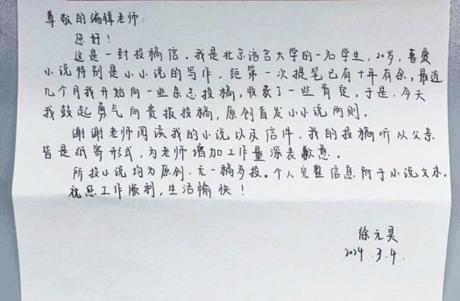 尊敬的编辑老师:
您好!
这是一封投稿信。我是北京语言大学的一名学生,20岁,喜爱
小说特别是小小说的写作,距第一次提笔已有十年有余,最近
几个月我开始向一些杂志投稿,收获了一些肯定。于是,今天
我鼓起勇气向贵报投稿,原创首发小小说两则。
谢谢老师阅读我的小说以及信件,我的投稿听从父亲
皆是纸寄形式,为老师增加工作量深表歉意。
所投小说均为原创,无一稿多投。个人完整信息附于小说文末。
祝您工作顺利,生活愉快!
徐元昊
2024.3.4.